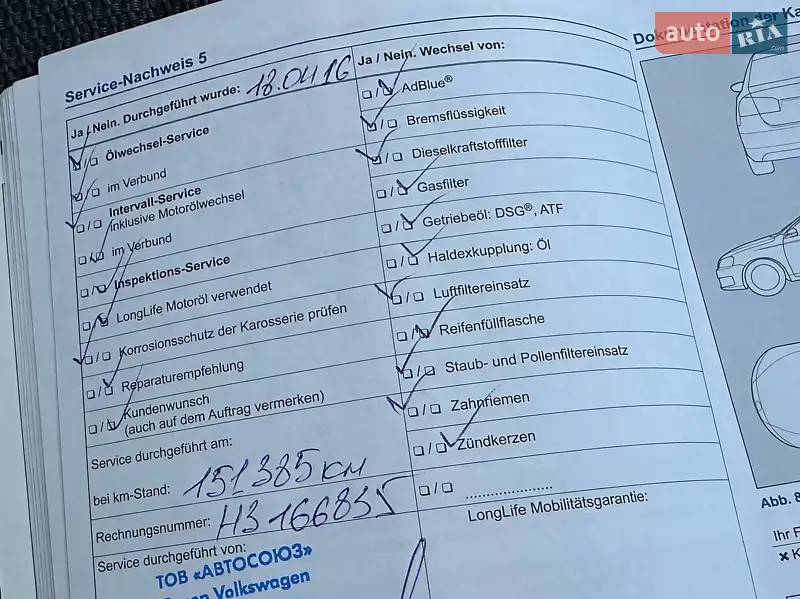 Service-Nachweis 5
Ja / Nein. Durchgeführt wurde: 18.04 16
Ölwechsel-Service
im Verbund
Intervall-Service
inklusive Motorölwechsel
im Verbund
Inspektions-Service
LongLife Motoröl verwendet
Korrosionsschutz der Karosserie prüfen
Reparaturempfehlung
Kundenwunsch
(auch auf dem Auftrag vermerken)
Service durchgeführt am:
bei km-Stand: 151385 км
Rechnungsnummer: НЗ 166835
Service durchgeführt von:
ТОВ «АВТОСОЮЗ»
Volkswagen
Ja / Nein. Wechsel von:
AdBlue®
Bremsflüssigkeit
Dieselkraftstofffilter
Gasfilter
Getriebeöl: DSG®, ATF
Haldexkupplung: Öl
Luftfiltereinsatz
Reifenfüllflasche
Staub- und Pollenfiltereinsatz
Zahnriemen
Zündkerzen
....................
LongLife Mobilitätsgarantie:
der Ka
auto RIA
.com
Abb. 8
Ihr F
× K